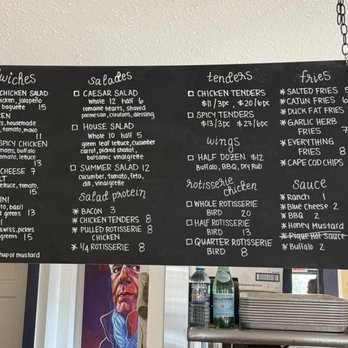 wiches
CHICKEN SALAD
chicken, jalapeño
baguette 15
housemade
tomato, mayo
11
SPICY CHICKEN
lettuce, tomato,
13
CHEESE 7
LT
lettuce, tomato,
15
INI
basil
greens 13
swiss, pickles
15
or mustard
salades
CAESAR SALAD
Whole 12 half 6
romaine hearts, shaved
parmesan, croutons, dressing
HOUSE SALAD
Whole 10 half 5
green leaf lettuce, cucumber
carrot, pickled shallot,
balsamic vinaigrette
SUMMER SALAD 12
cucumber, tomato, feta,
dill, vinaigrette
salad protein
* BACON 3
* CHICKEN TENDERS 8
* PULLED ROTISSERIE 8
CHICKEN
* 1/4 ROTISSERIE 8
tenders
CHICKEN TENDERS
$11/3pc, $20/6pc
SPICY TENDERS
$13/3pc $23/6pc
wings
HALF DOZEN $12
Buffalo, BBQ, Dry Rub
rotisserie
chicken
WHOLE ROTISSERIE
BIRD 20
HALF ROTISSERIE
BIRD 13
QUARTER ROTISSERIE
BIRD 8
fries
* SALTED FRIES 5
* CAJUN FRIES 6
* DUCK FAT FRIES
* GARLIC HERB
FRIES 7
* EVERYTHING
FRIES 8
* CAPE COD CHIPS
sauce
* Ranch 1
* Blue Cheese 2
* BBQ 2
* Honey Mustard
* Pique Hot Sauce
* Buffalo 2